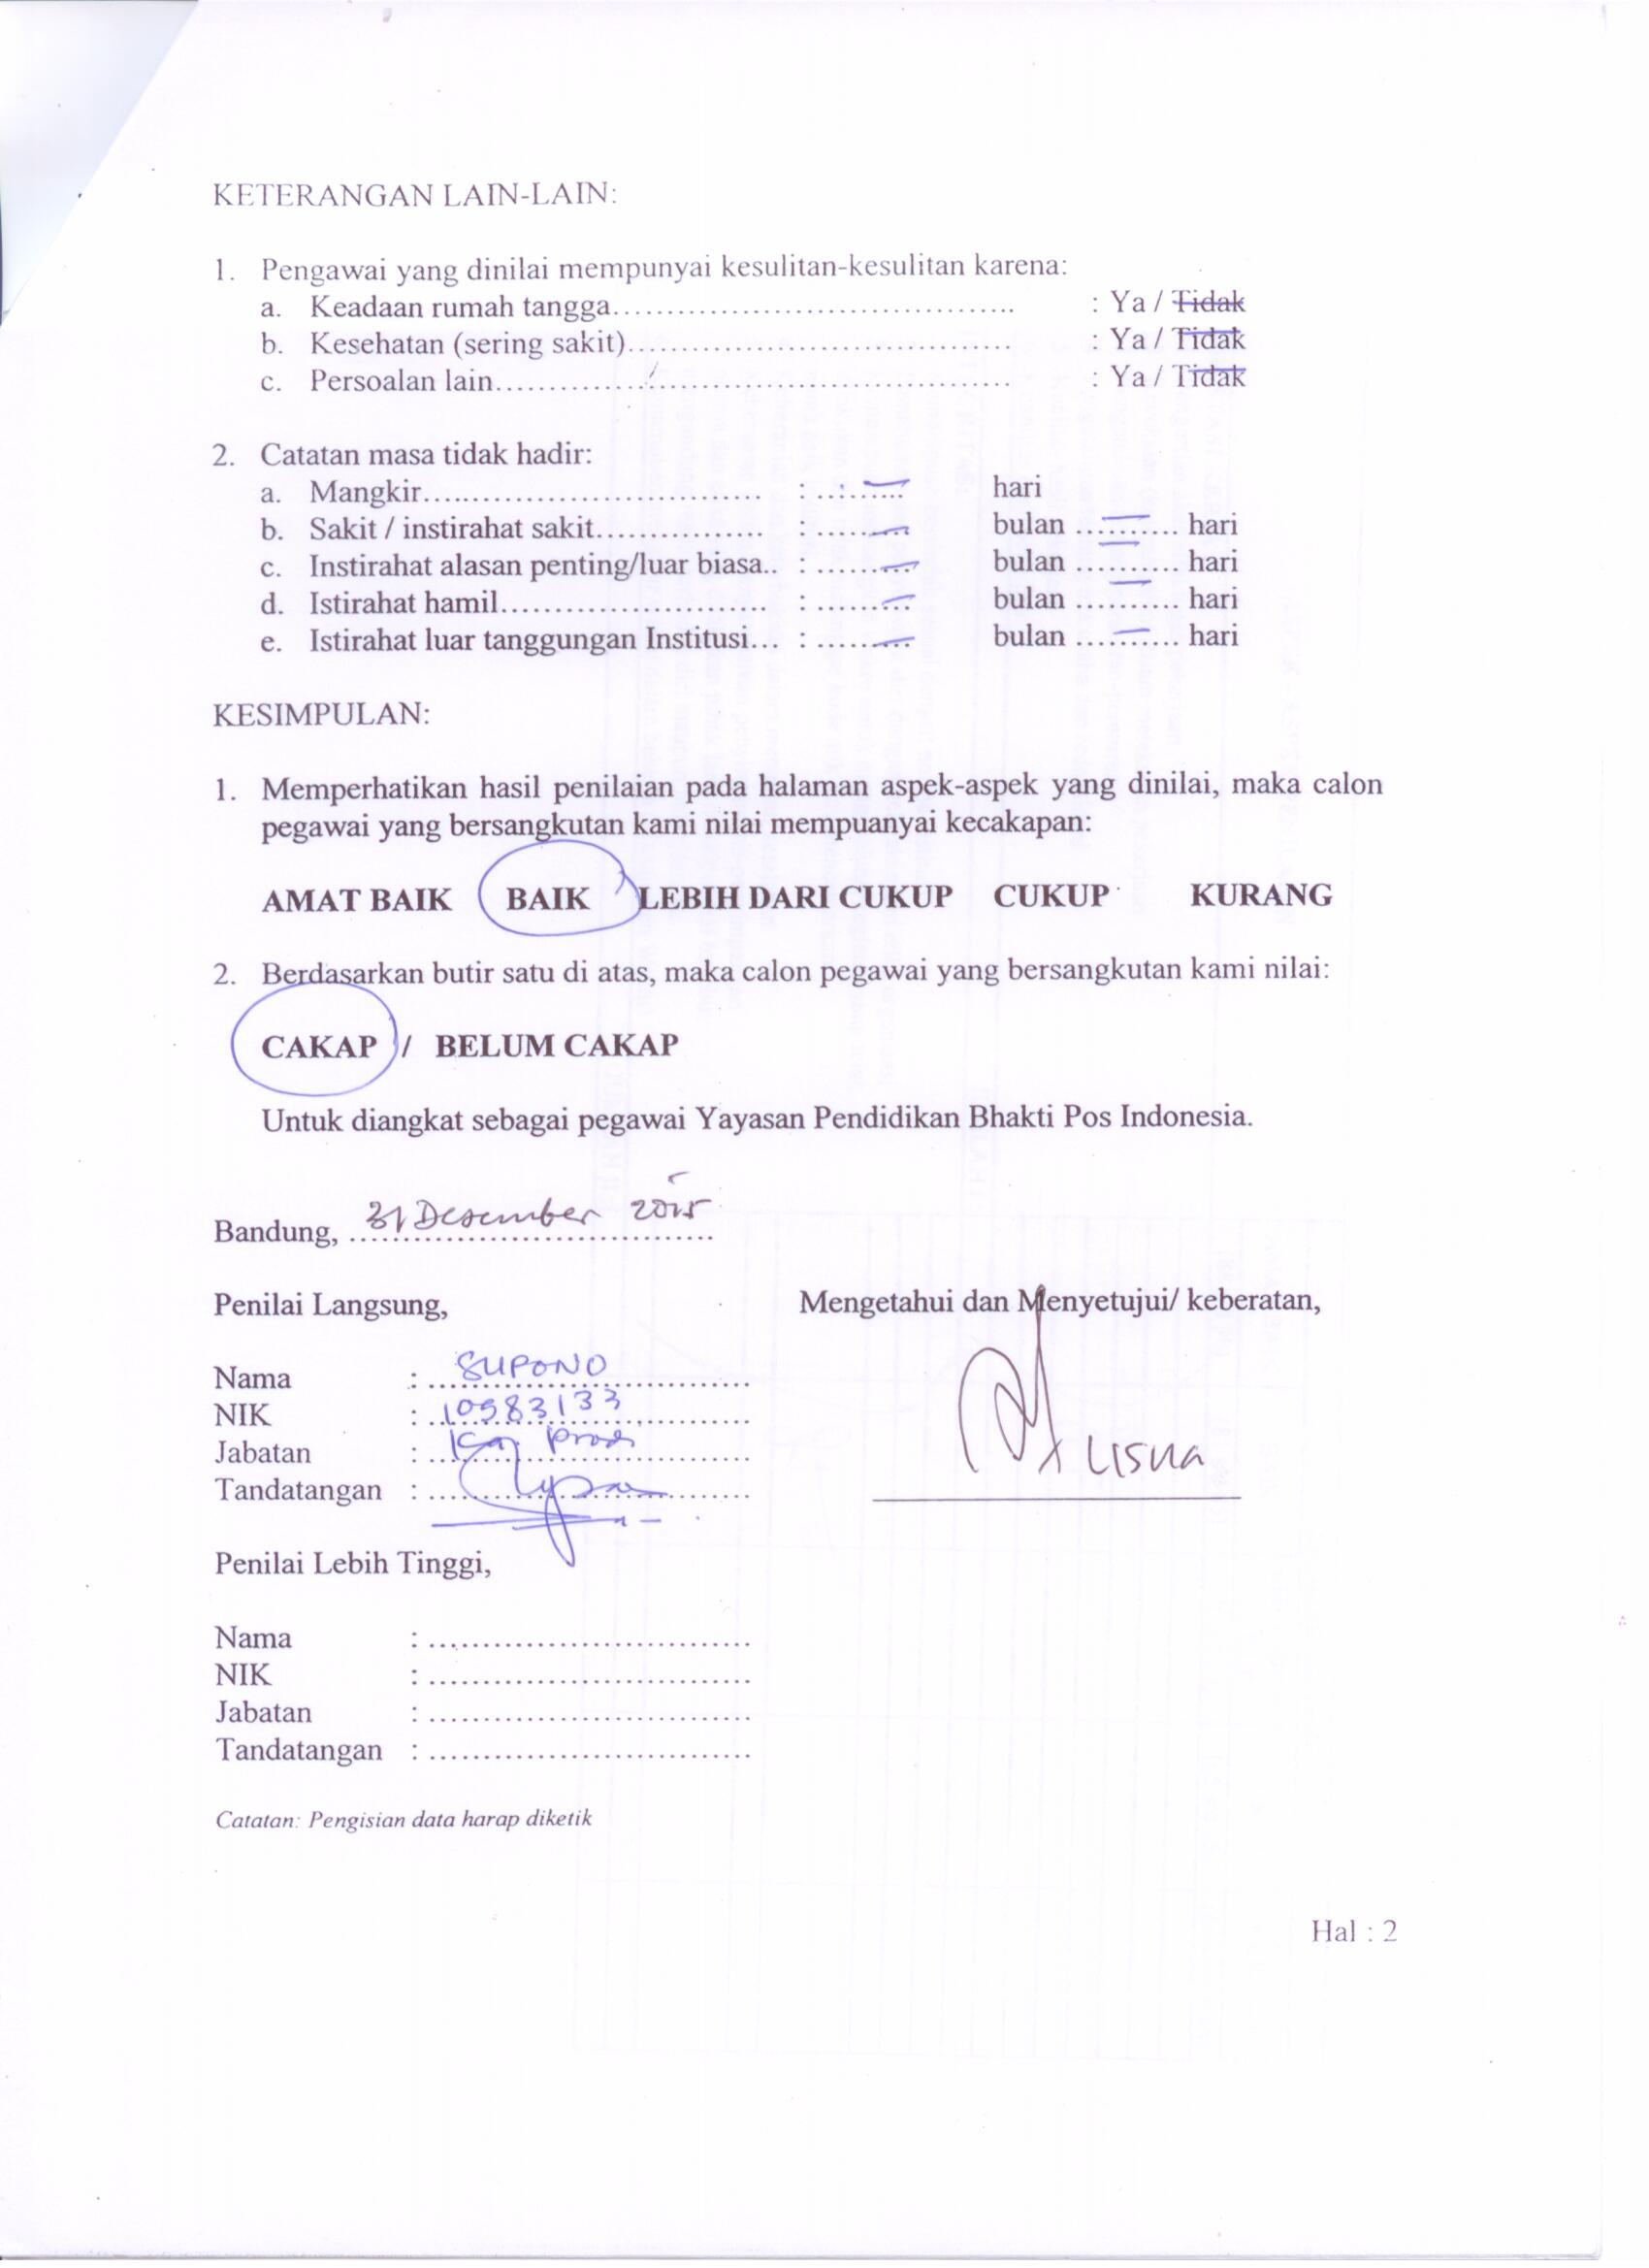 KETERANGAN LAIN-LAIN:
1. Pengawai yang dinilai mempunyai kesulitan-kesulitan karena:
a. Keadaan rumah tangga..................................... : Ya / Tidak
b. Kesehatan (sering sakit)................................... : Ya / Tidak
c. Persoalan lain............................................... : Ya / Tidak
2. Catatan masa tidak hadir:
a. Mangkir............................... : .......... — hari
b. Sakit / instirahat sakit................ : .......... — bulan .......... — hari
c. Instirahat alasan penting/luar biasa.. : .......... — bulan .......... — hari
d. Istirahat hamil......................... : .......... — bulan .......... — hari
e. Istirahat luar tanggungan Institusi... : .......... — bulan .......... — hari
KESIMPULAN:
1. Memperhatikan hasil penilaian pada halaman aspek-aspek yang dinilai, maka calon
pegawai yang bersangkutan kami nilai mempuanyai kecakapan:
AMAT BAIK BAIK LEBIH DARI CUKUP CUKUP KURANG
2. Berdasarkan butir satu di atas, maka calon pegawai yang bersangkutan kami nilai:
CAKAP / BELUM CAKAP
Untuk diangkat sebagai pegawai Yayasan Pendidikan Bhakti Pos Indonesia.
Bandung, 31 Desember 2015
Penilai Langsung, Mengetahui dan Menyetujui/ keberatan,
Nama : SUPONO
NIK : 10583133
Jabatan : Ka. Prodi
Tandatangan : ..............................
Lisna
Penilai Lebih Tinggi,
Nama : ..............................
NIK : ..............................
Jabatan : ..............................
Tandatangan : ..............................
Catatan: Pengisian data harap diketik
Hal : 2